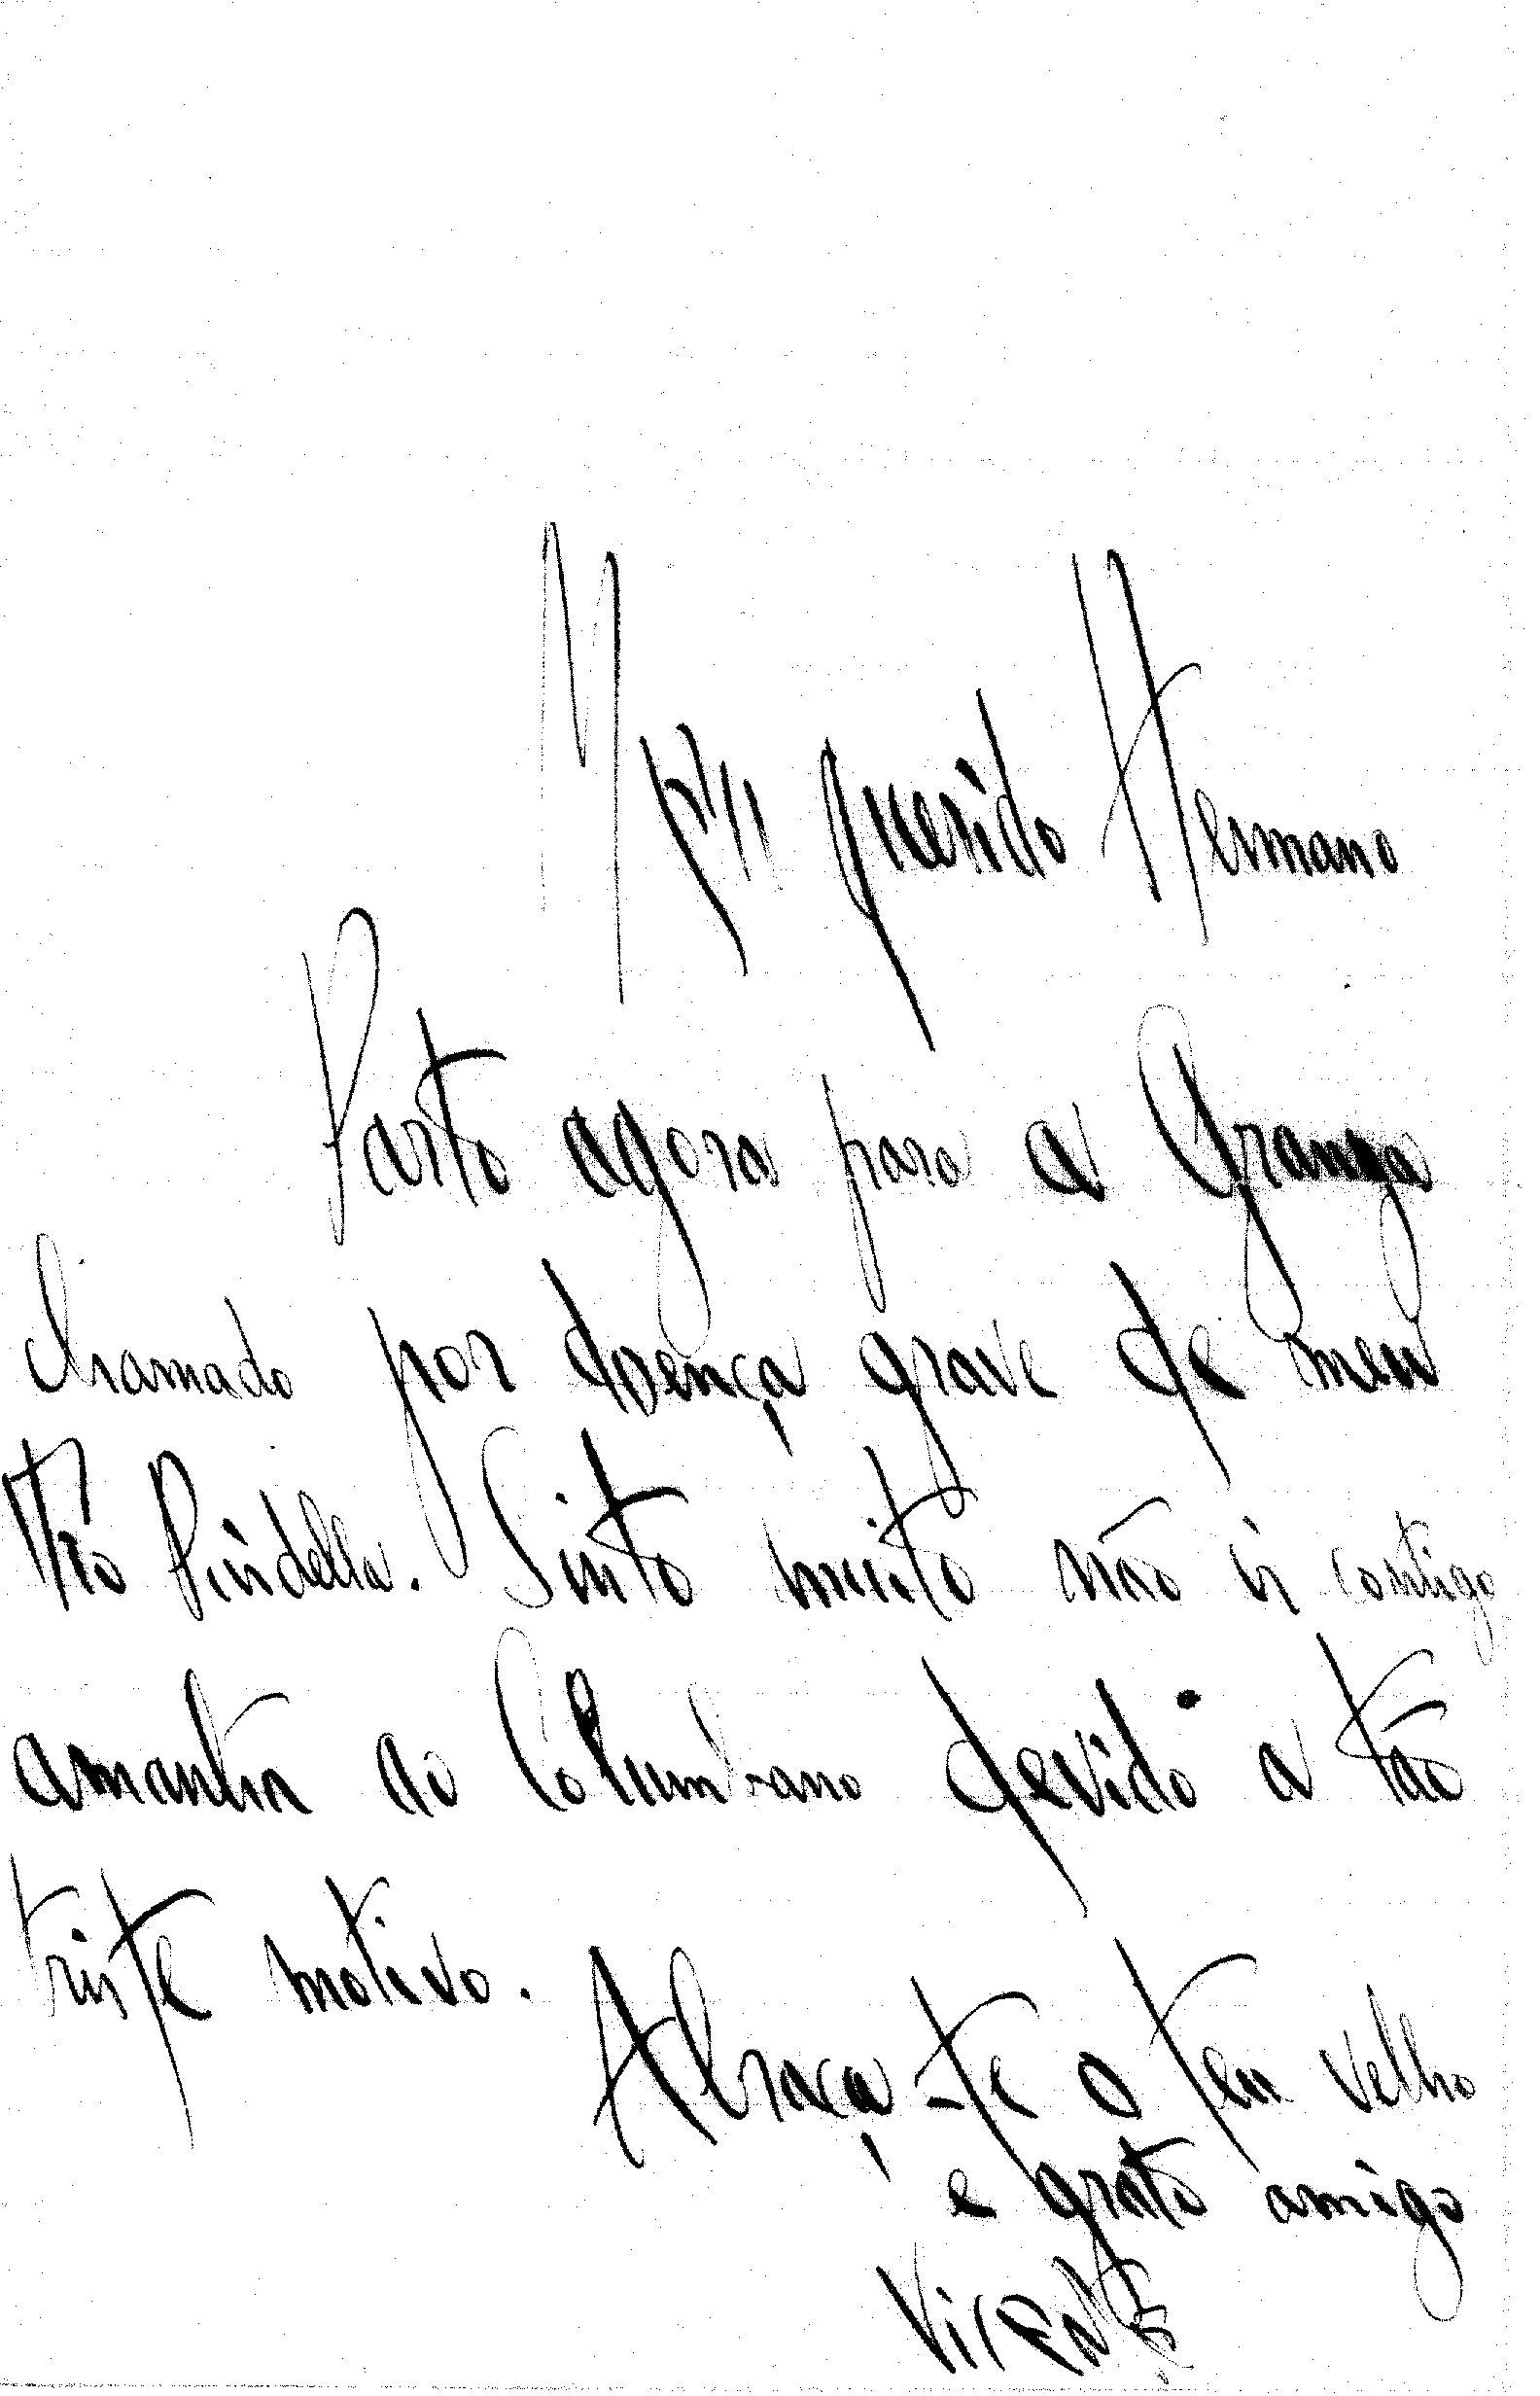 Meu querido Hermano
Parto agora para a Granja
chamado por doença grave de meu
Thio Pindella. Sinto muito não ir contigo
amanhã ao Columbano devido a tão
triste motivo.
Abraça-te o teu velho
e grato amigo
Vicente